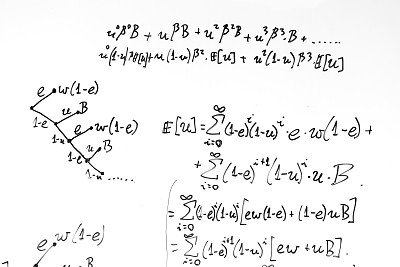 u⁰β⁰B + uβB + u²β²B + u³β³·B + ......
u⁰(1-u)β𝔼[u] + u(1-u)β²·𝔼[u] + u²(1-u)β³·𝔼[u]
e w(1-e)
1-e u B
1-u e w(1-e)
1-e u B
1-u ......
𝔼[u] = ∑_{i=0}^{∞} (1-e)^i (1-u)^i · e · w(1-e) +
+ ∑_{i=0}^{∞} (1-e)^{i+1} (1-u)^i · u · B
= ∑_{i=0}^{∞} (1-e)^i (1-u)^i [ew(1-e) + (1-e)uB]
= ∑_{i=0}^{∞} (1-e)^{i+1} (1-u)^i [ew + uB].
e w(1-e)